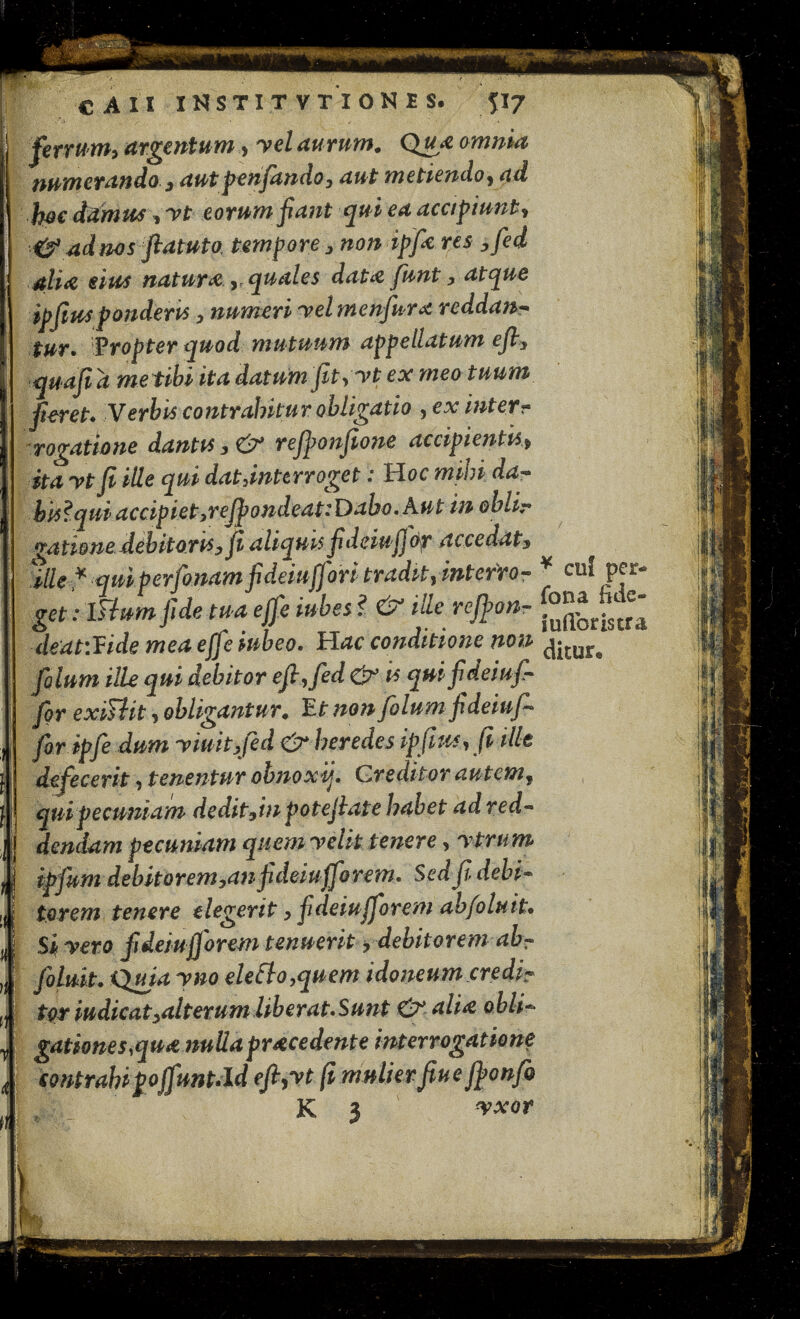 CAII INSTITVTIONES. 517
ferrum, argentum, vel aurum. Quæ omnia
numerando, aut pensando, aut metiendo, ad
hoc damus, vt eorum fiant qui ea accipiunt,
& ad nos statuto tempore, non ipsæ res, sed
aliæ eius naturæ, quales datæ sunt, atque
ipsius ponderis, numeri vel mensuræ reddan-
tur. Propter quod mutuum appellatum est,
quasi à me tibi ita datum sit, vt ex meo tuum
fieret. Verbis contrahitur obligatio, ex inter-
rogatione dantis, & responsione accipientis,
ita vt si ille qui dat, interroget: Hoc mihi da-
bis? qui accipiet, respondeat: Dabo. Aut in obli-
gatione debitoris, si aliquis fideiussor accedat,
ille * qui personam fideiussori tradit, interro-
get: Istum fide tua esse iubes? & ille respon-
deat: Fide mea esse iubeo. Hac conditione non
solum ille qui debitor est, sed & is qui fideius-
sor existit, obligantur. Et non solum fideius-
sor ipse dum viuit, sed & heredes ipsius, si ille
defecerit, tenentur obnoxij. Creditor autem,
qui pecuniam dedit, in potestate habet ad red-
dendam pecuniam quem velit tenere, vtrum
ipsum debitorem, an fideiussorem. Sed si debi-
torem tenere elegerit, fideiussorem absoluit.
Si vero fideiussorem tenuerit, debitorem ab-
soluit. Quia vno electo, quem idoneum credi-
tor iudicat, alterum liberat. Sunt & aliæ obli-
gationes, quæ nulla præcedente interrogatione
contrahi possunt. Id est, vt si mulier siue sponso
K 3 vxor
* cui per-
sona fide-
iussoris tra
ditur.